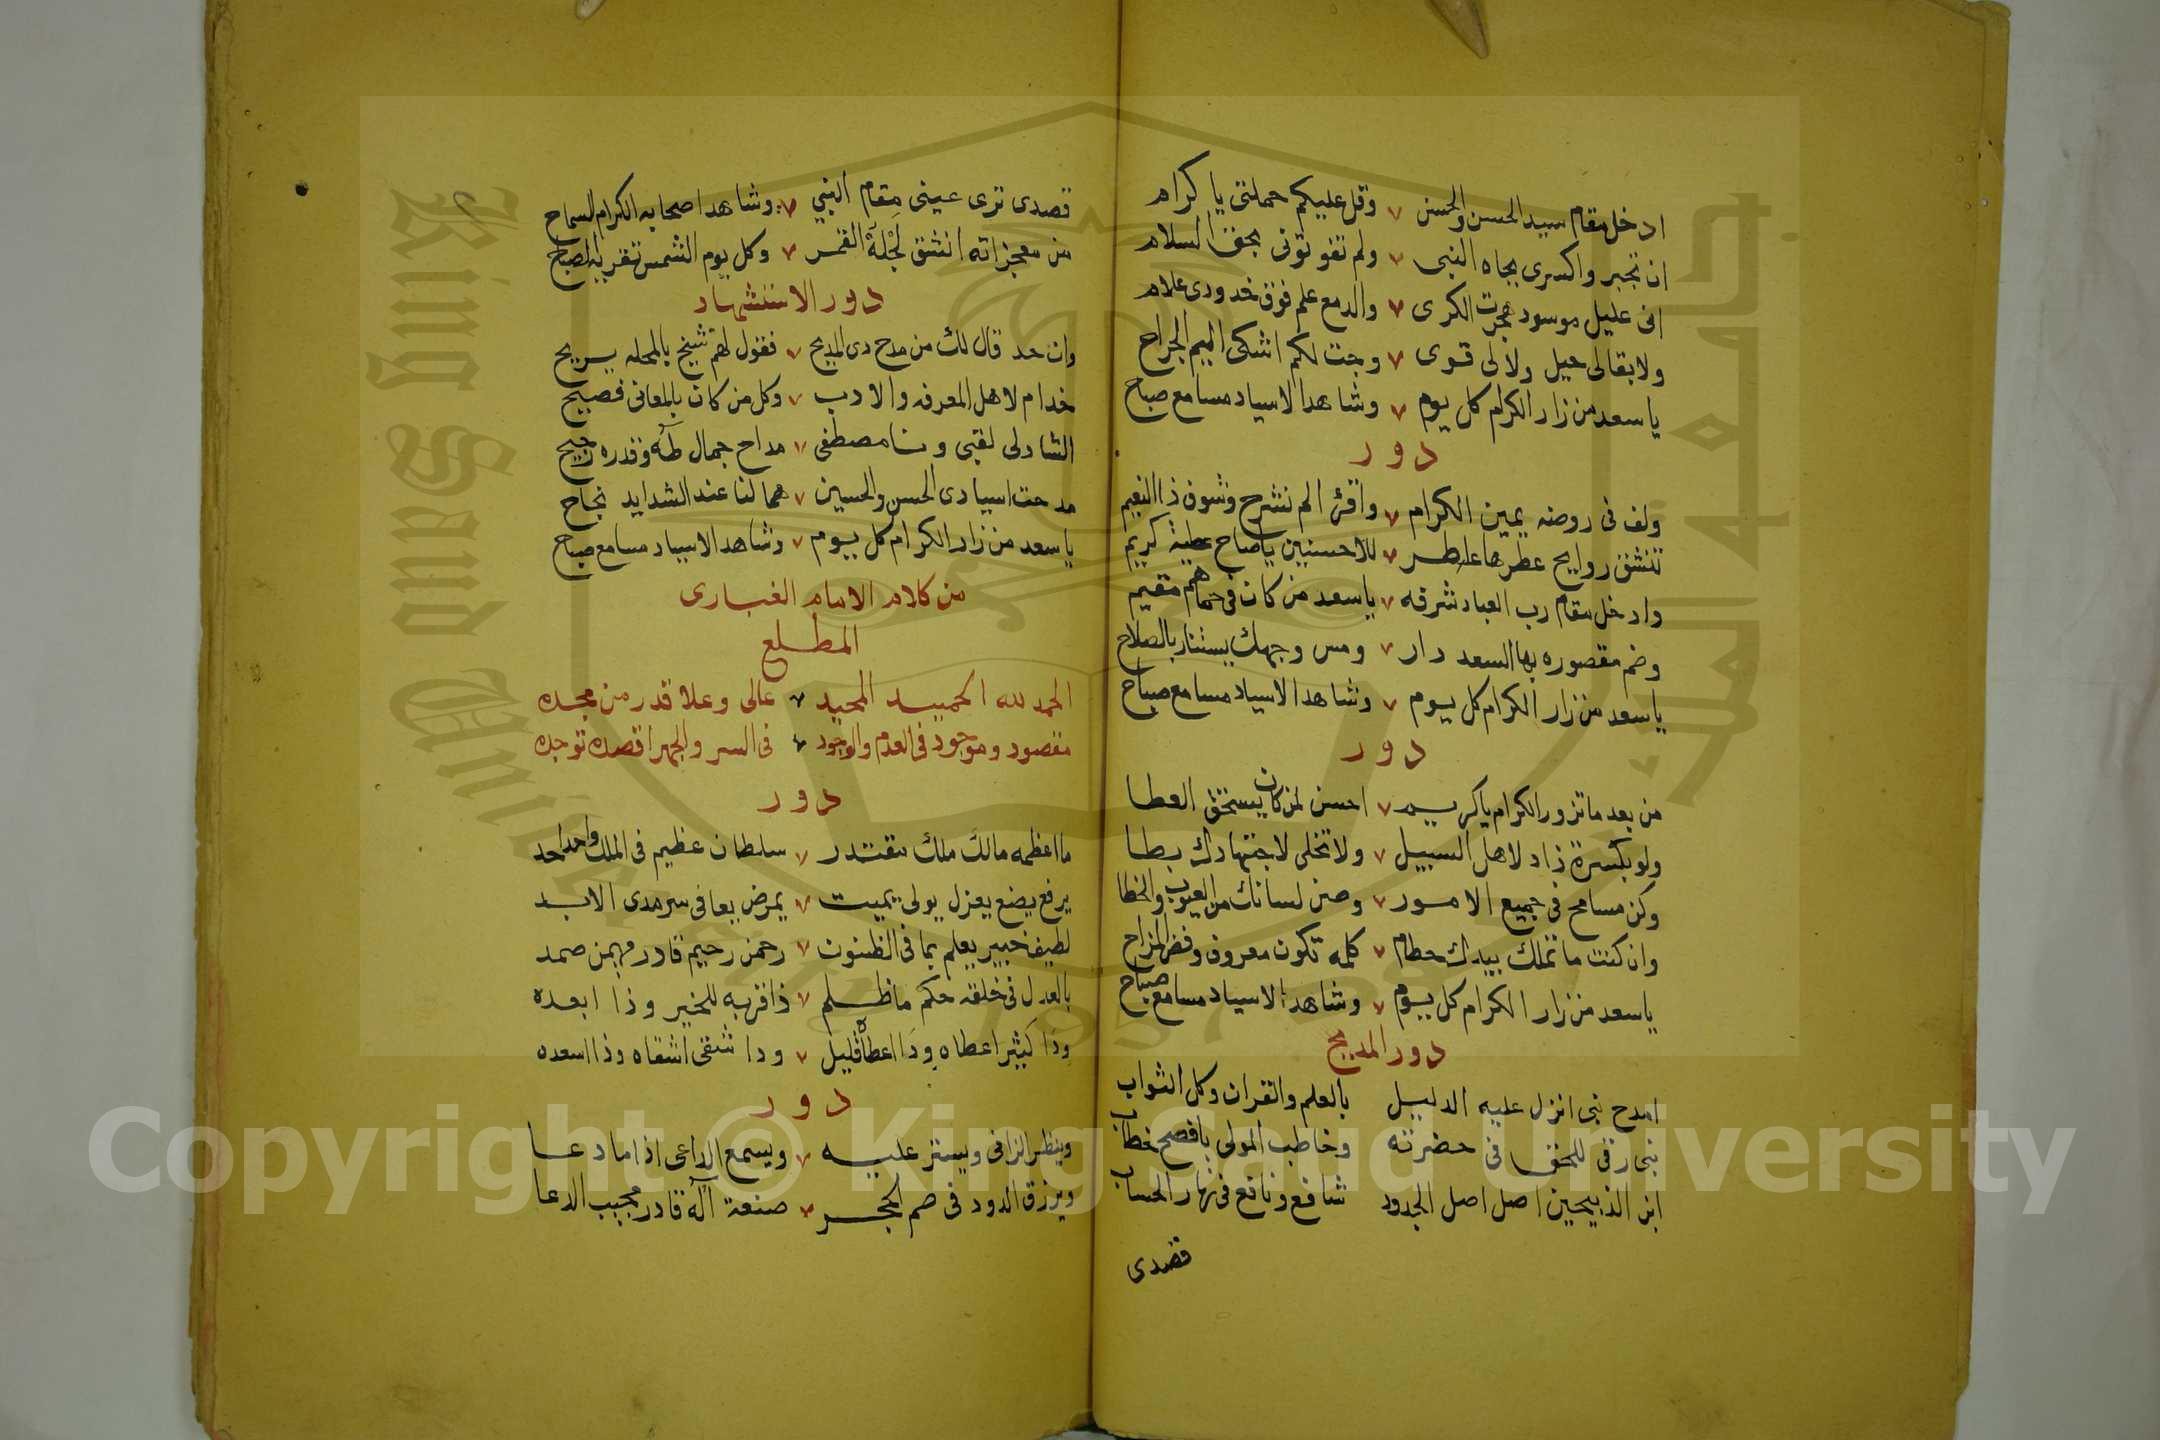 ادخل مقام سيد الحسن والحسن ٧ وقل عليكم حملتى يا كرام
ان تجبروا كسرى بجاه النبى ٧ ولم تفوتونى بحق السلام
انى عليل موسود هجرت الكرى ٧ والدمع علم فوق خدودى علام
ولا بقالى حيل ولا لى قوى ٧ وجت لكم اشكى اليم الجراح
يا سعد من زار الكرام كل يوم ٧ وشاهد الاسياد مسا مع صباح
دور
وقف فى روضه يمين الكرام ٧ واقرئ الم نشرح وشوف ذا النعيم
تنشق روايح عطرها عطر ٧ للاحسنين يا صاح عطية كريم
وادخل مقام رب العباد شرفه ٧ يا سعد من كان فى حماهم مقيم
وضم مقصوره بها السعد دار ٧ ومس وجهك يستنار بالصلاح
يا سعد من زار الكرام كل يوم ٧ وشاهد الاسياد مسا مع صباح
دور
من بعد ما تزور الكرام يا كريم ٧ احسن لمن كان يستحق العطا
ولو بكسرة زاد لاهل السبيل ٧ ولا تخلى لاجتهادك بطا
وكن مسامح فى جميع الامور ٧ وصن لسانك من العيوب والخطا
وان كنت ما تملك بيدك حطام ٧ كلمه تكون معروف وفض المزاح
يا سعد من زار الكرام كل يوم ٧ وشاهد الاسياد مسا مع صباح
دور المديح
امدح نبى انزل عليه الدليل بالعلم والقران وكل الثواب
نبى رقى للحق فى حضرته وخاطب المولى بافصح خطاب
ابن الذبيحين اصل اصل الجدود شافع ونافع فى نهار الحساب
قصدى
قصدى ترى عينى مقام النبي ٧ وشاهد اصحابه الكرام السماح
من معجزاته انشق لجلة القمر ٧ وكل يوم الشمس تقريه الصباح
دور الاستشهاد
وان حد قال لك من مدح دى المديح ٧ فقول لهم شيخ بالمحله يريح
خدام لاهل المعرفه والادب ٧ وكل من كان بالمعانى فصيح
الشادلى لقبى ونا مصطفى ٧ مداح جمال طه وقدره رجيح
مدحت اسيادى الحسن والحسين ٧ هما لنا عند الشدايد نجاح
يا سعد من زار الكرام كل يوم ٧ وشاهد الاسياد مسا مع صباح
من كلام الامام الغبارى
المطلع
الحمد لله الحميد المجيد ٧ عالى وعلا قدر من مجده
مقصود وموجود فى العدم والوجود ٧ فى السر والجهر اقصده توجده
دور
ما اعظمه مالك ملك مقتدر ٧ سلطان عظيم فى الملك واحد احد
يرفع يضع يعزل يولى يميت ٧ يمرض يعافى سرمدى الابد
لطيف خبير يعلم بما فى الظنون ٧ رحمن رحيم قادر مهيمن صمد
بالعدل فى خلقه حكم ما ظلم ٧ ذا قربه للخير وذا ابعده
وذا كثير اعطاه وذا اعطاه قليل ٧ ودا شقى اشقاه وذا اسعده
دور
وينظر الزانى ويستر عليه ٧ ويسمع الداعى اذا ما دعا
ويرزق الدود فى صم الحجر ٧ صنعة اله قادر مجيب الدعا
King Saud University
جامعة الملك
1957
Copyright © King Saud University